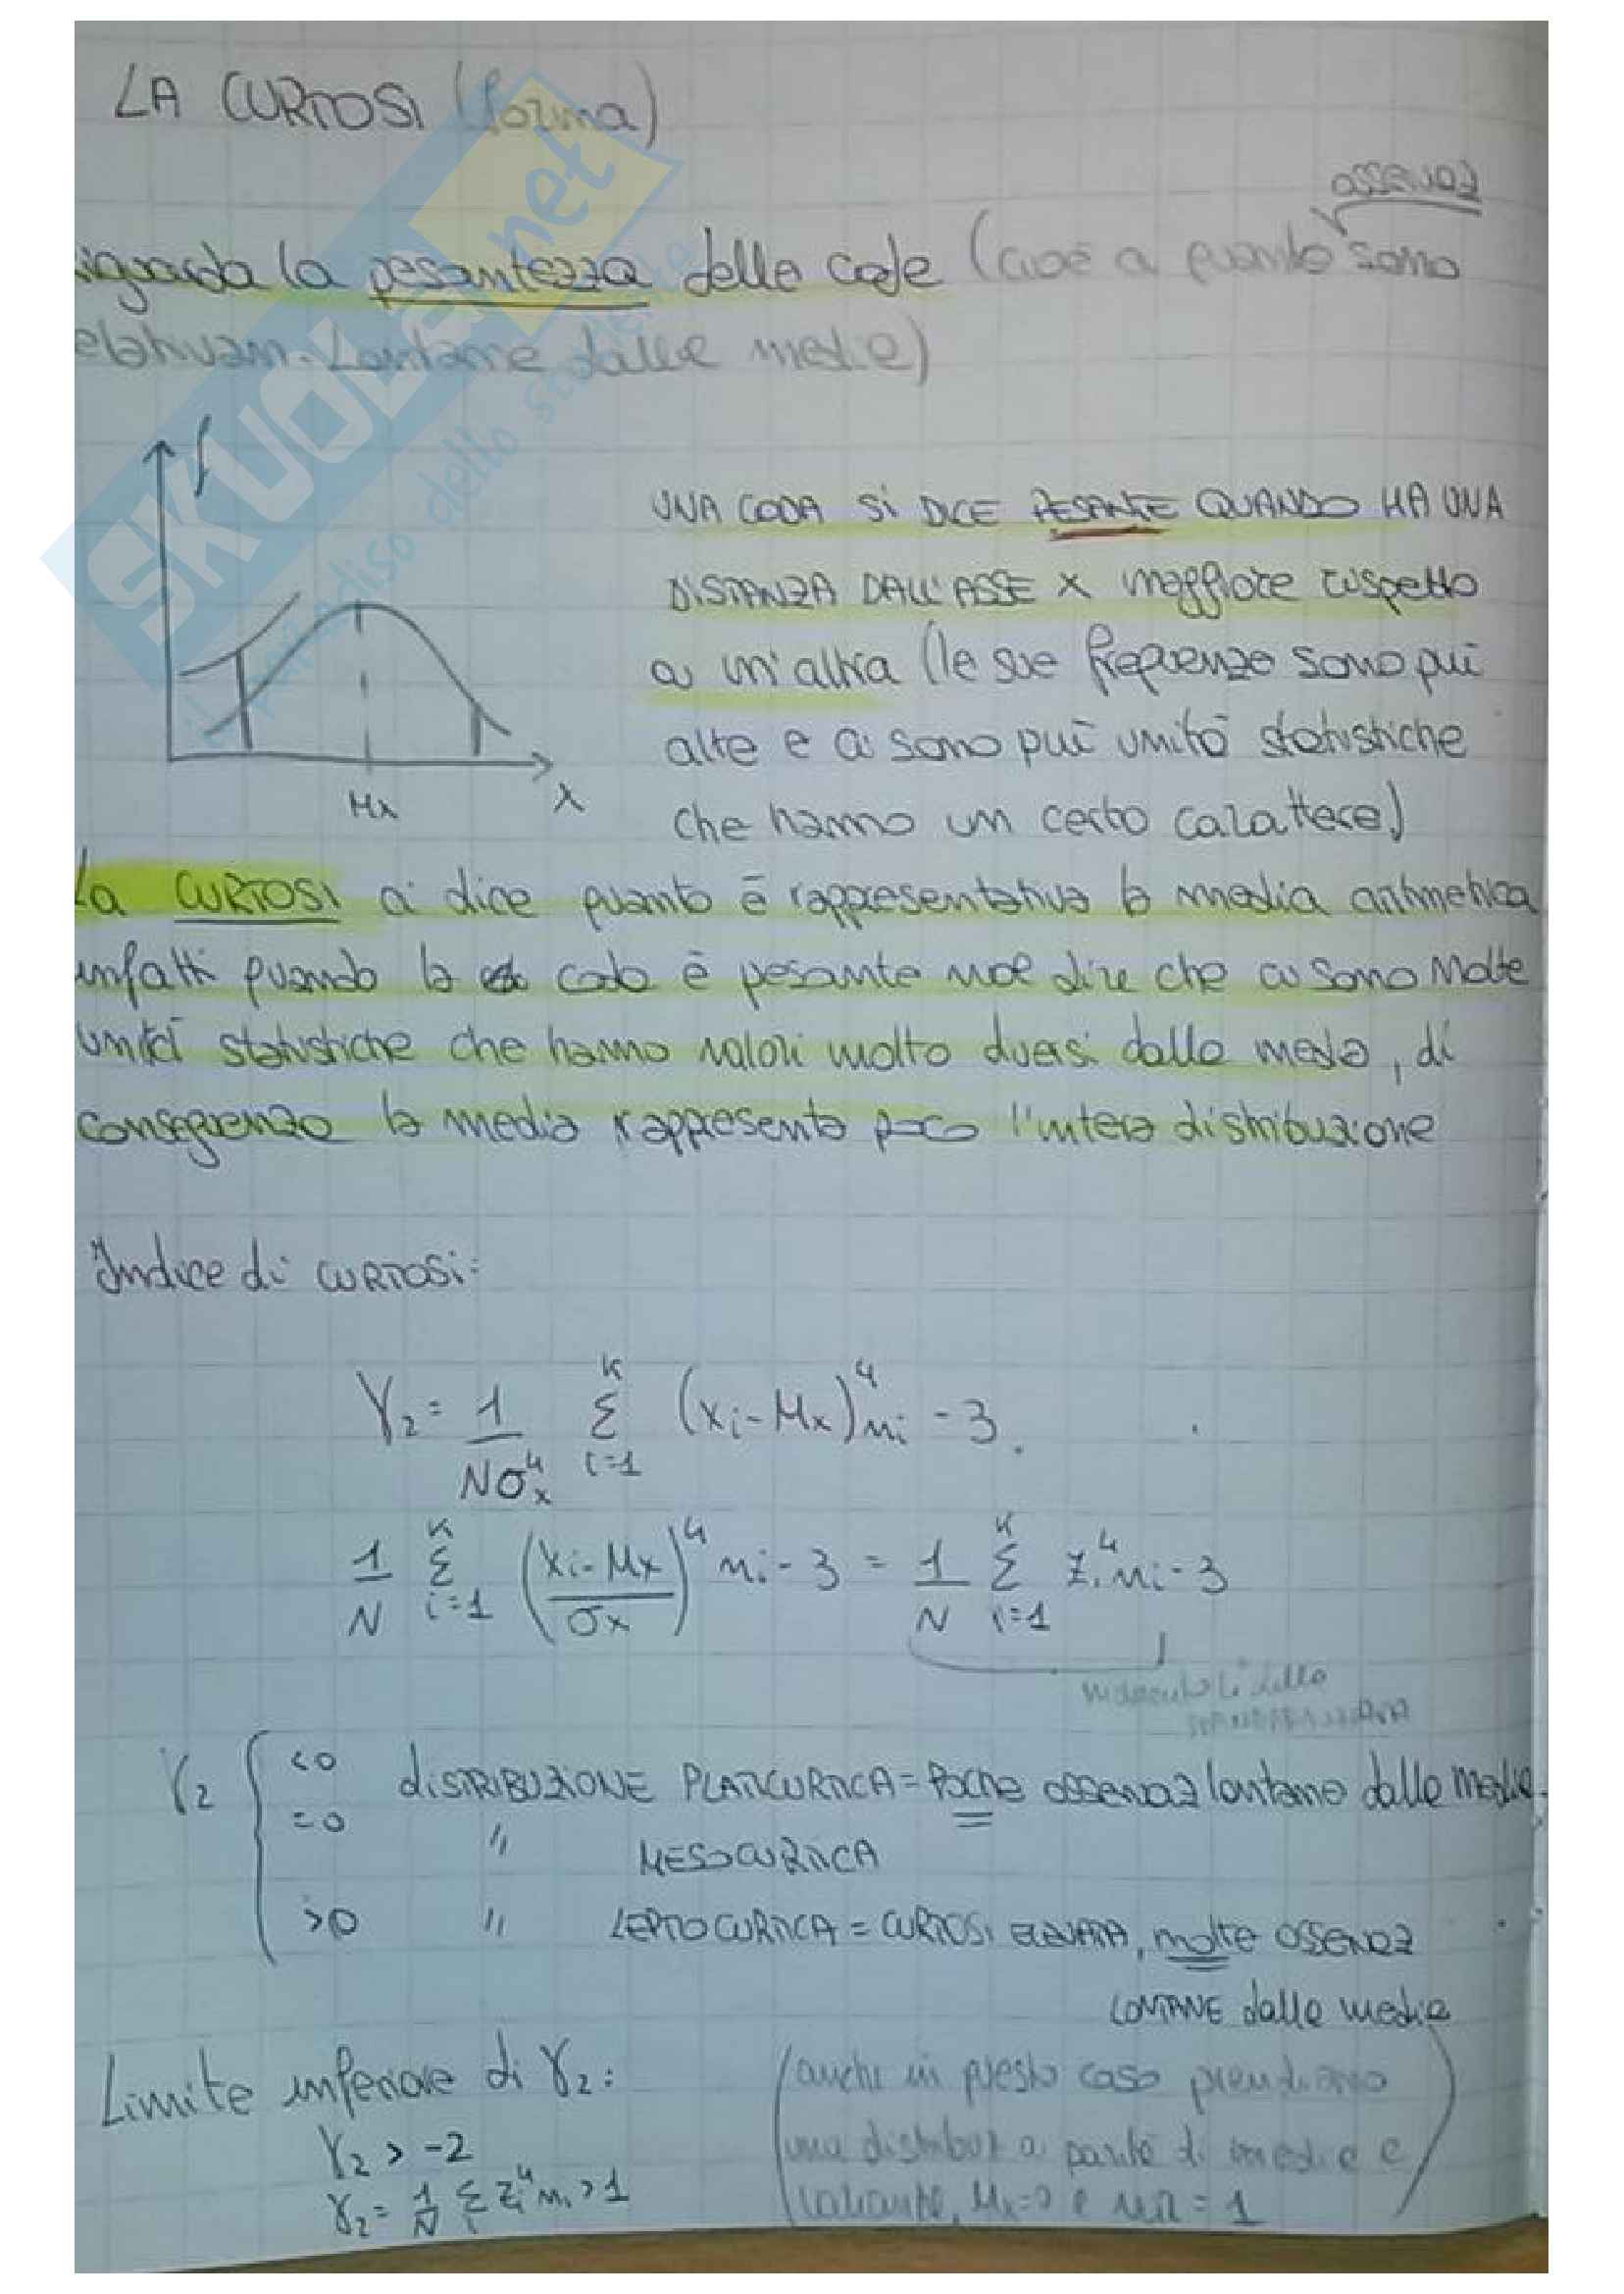 LA CURTOSI (forma)
osservaz
riguarda la pesantezza delle code (cioè a quanto sono
elativam. Lontane dalle medie)
f
UNA CODA SI DICE PESANTE QUANDO HA UNA
DISTANZA DALL'ASSE X maggiore rispetto
a un'altra (le sue frequenze sono più
alte e ci sono più unità statistiche
che hanno un certo carattere)
Mx x
La CURTOSI ci dice quanto è rappresentativa la media aritmetica
infatti quando la coda è pesante vuol dire che ci sono molte
unità statistiche che hanno valori molto diversi dalla media, di
conseguenza la media rappresenta poco l'intera distribuzione
Indice di CURTOSI:
γ₂ = 1/(Nσₓ⁴) Σ_{i=1}^{K} (xi - Mx)⁴ ni - 3.
1/N Σ_{i=1}^{K} ((xi - Mx)/σx)⁴ ni - 3 = 1/N Σ_{i=1}^{K} zi⁴ ni - 3
momento 4° della
STANDARDIZZATA
γ₂ <0 DISTRIBUZIONE PLATICURTICA = Poche osservaz lontano dalle medie.
=0 " MESOCURTICA
>0 " LEPTOCURTICA = CURTOSI ELEVATA, molte osservaz
LONTANE dalle medie
Limite inferiore di γ₂:
γ₂ > -2
γ₂ = 1/N Σ_i zi⁴ ni > 1
(anche in questo caso prendiamo
una distribuz a parità di medie e
= 1)
SKUOLA.net
il paradiso dello studente